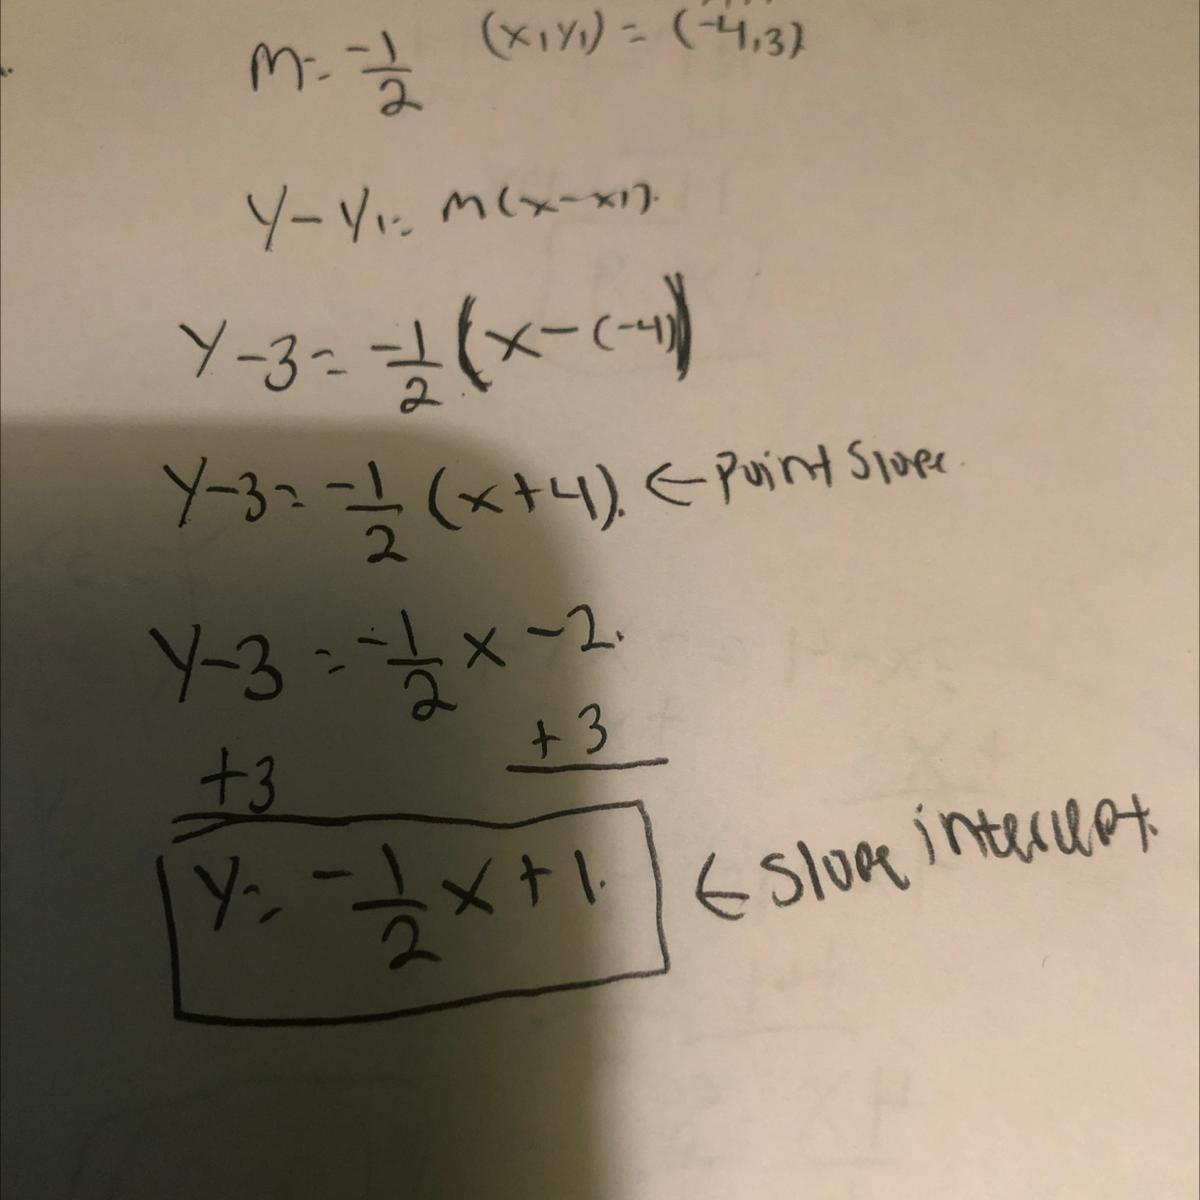 m = -1/2 (x1, y1) = (-4, 3)
y - y1 = m(x - x1).
y - 3 = -1/2 (x - (-4))
y - 3 = -1/2 (x + 4). ← Point Slope.
y - 3 = -1/2 x - 2.
+3 +3
y = -1/2 x + 1. ← Slope intercept.